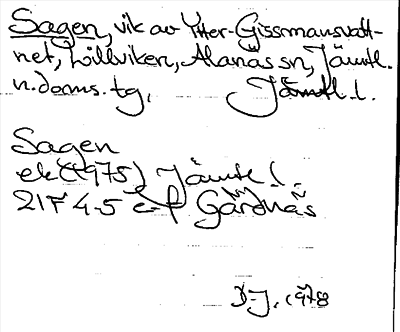 Sagen, vik av Ytter-Gissmansvatt-
net, Lillviken, Alanäs sn, Jämtl.
n. doms. tg, Jämtl. l.
Sagen
ek (1975) Jämtl. l.
21F 4-5 e-f Gärdnäs
D-J. 1978